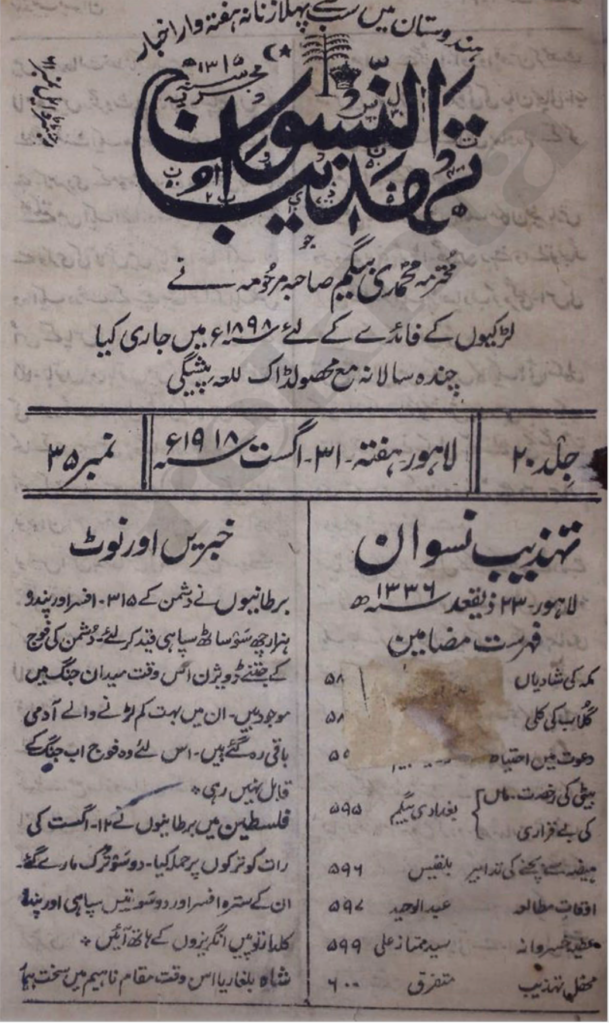 ہندوستان میں سب سے پہلا زنانہ ہفتہ وار اخبار
تہذیب النسواں
جو
محترمہ محمدی بیگم صاحبہ مرحومہ نے
لڑکیوں کے فائدے کے لئے ۱۸۹۸ء میں جاری کیا
چندہ سالانہ مع محصولڈاک للعہ پیشگی
جلد ۲۰
لاہور ہفتہ - ۳۱ - اگست سنہ ۱۹۱۸ء
نمبر ۳۵
تہذیب نسواں
لاہور - ۲۳ ذیقعد سنہ ۱۳۳۶ھ
فہرست مضامین
مکہ کی شادیاں ۵۸
گلاب کی کلی ۵۸
دعوت میں احتیاط
بیٹی کی رخصت - ماں
کی بے قراری
بغدادی بیگم ۵۹۵
ہیضہ سے بچنے کی تدابیر بلقیس ۵۹۶
اوقات مطالعہ عبدالوحید ۵۹۷
عطیہ خسروانہ سید ممتاز علی ۵۹۹
محفل تہذیب متفرق ۶۰۰
خبریں اور نوٹ
برطانیوں نے دشمن کے ۳۱۵ - افسر اور پندرہ
ہزار چھ سؤ ساٹھ سپاہی قید کر لئے - دشمن کی فوج
کے جتنے ڈویژن اس وقت میدان جنگ میں
موجود ہیں - ان میں بہت کم لڑنے والے آدمی
باقی رہ گئے ہیں - اس لئے وہ فوج اب جنگ کے
قابل نہیں رہی *
فلسطین میں برطانیوں نے ۱۲ - اگست کی
رات کو ترکوں پر حملہ کیا - دو سؤ ترک مارے گئے -
ان کے سترہ افسر اور دو سؤ تیس سپاہی اور پندرہ
کلدار توپیں انگریزوں کے ہاتھ آئیں *
شاہ بلغاریا اس وقت مقام ناہیم میں سخت بیمار